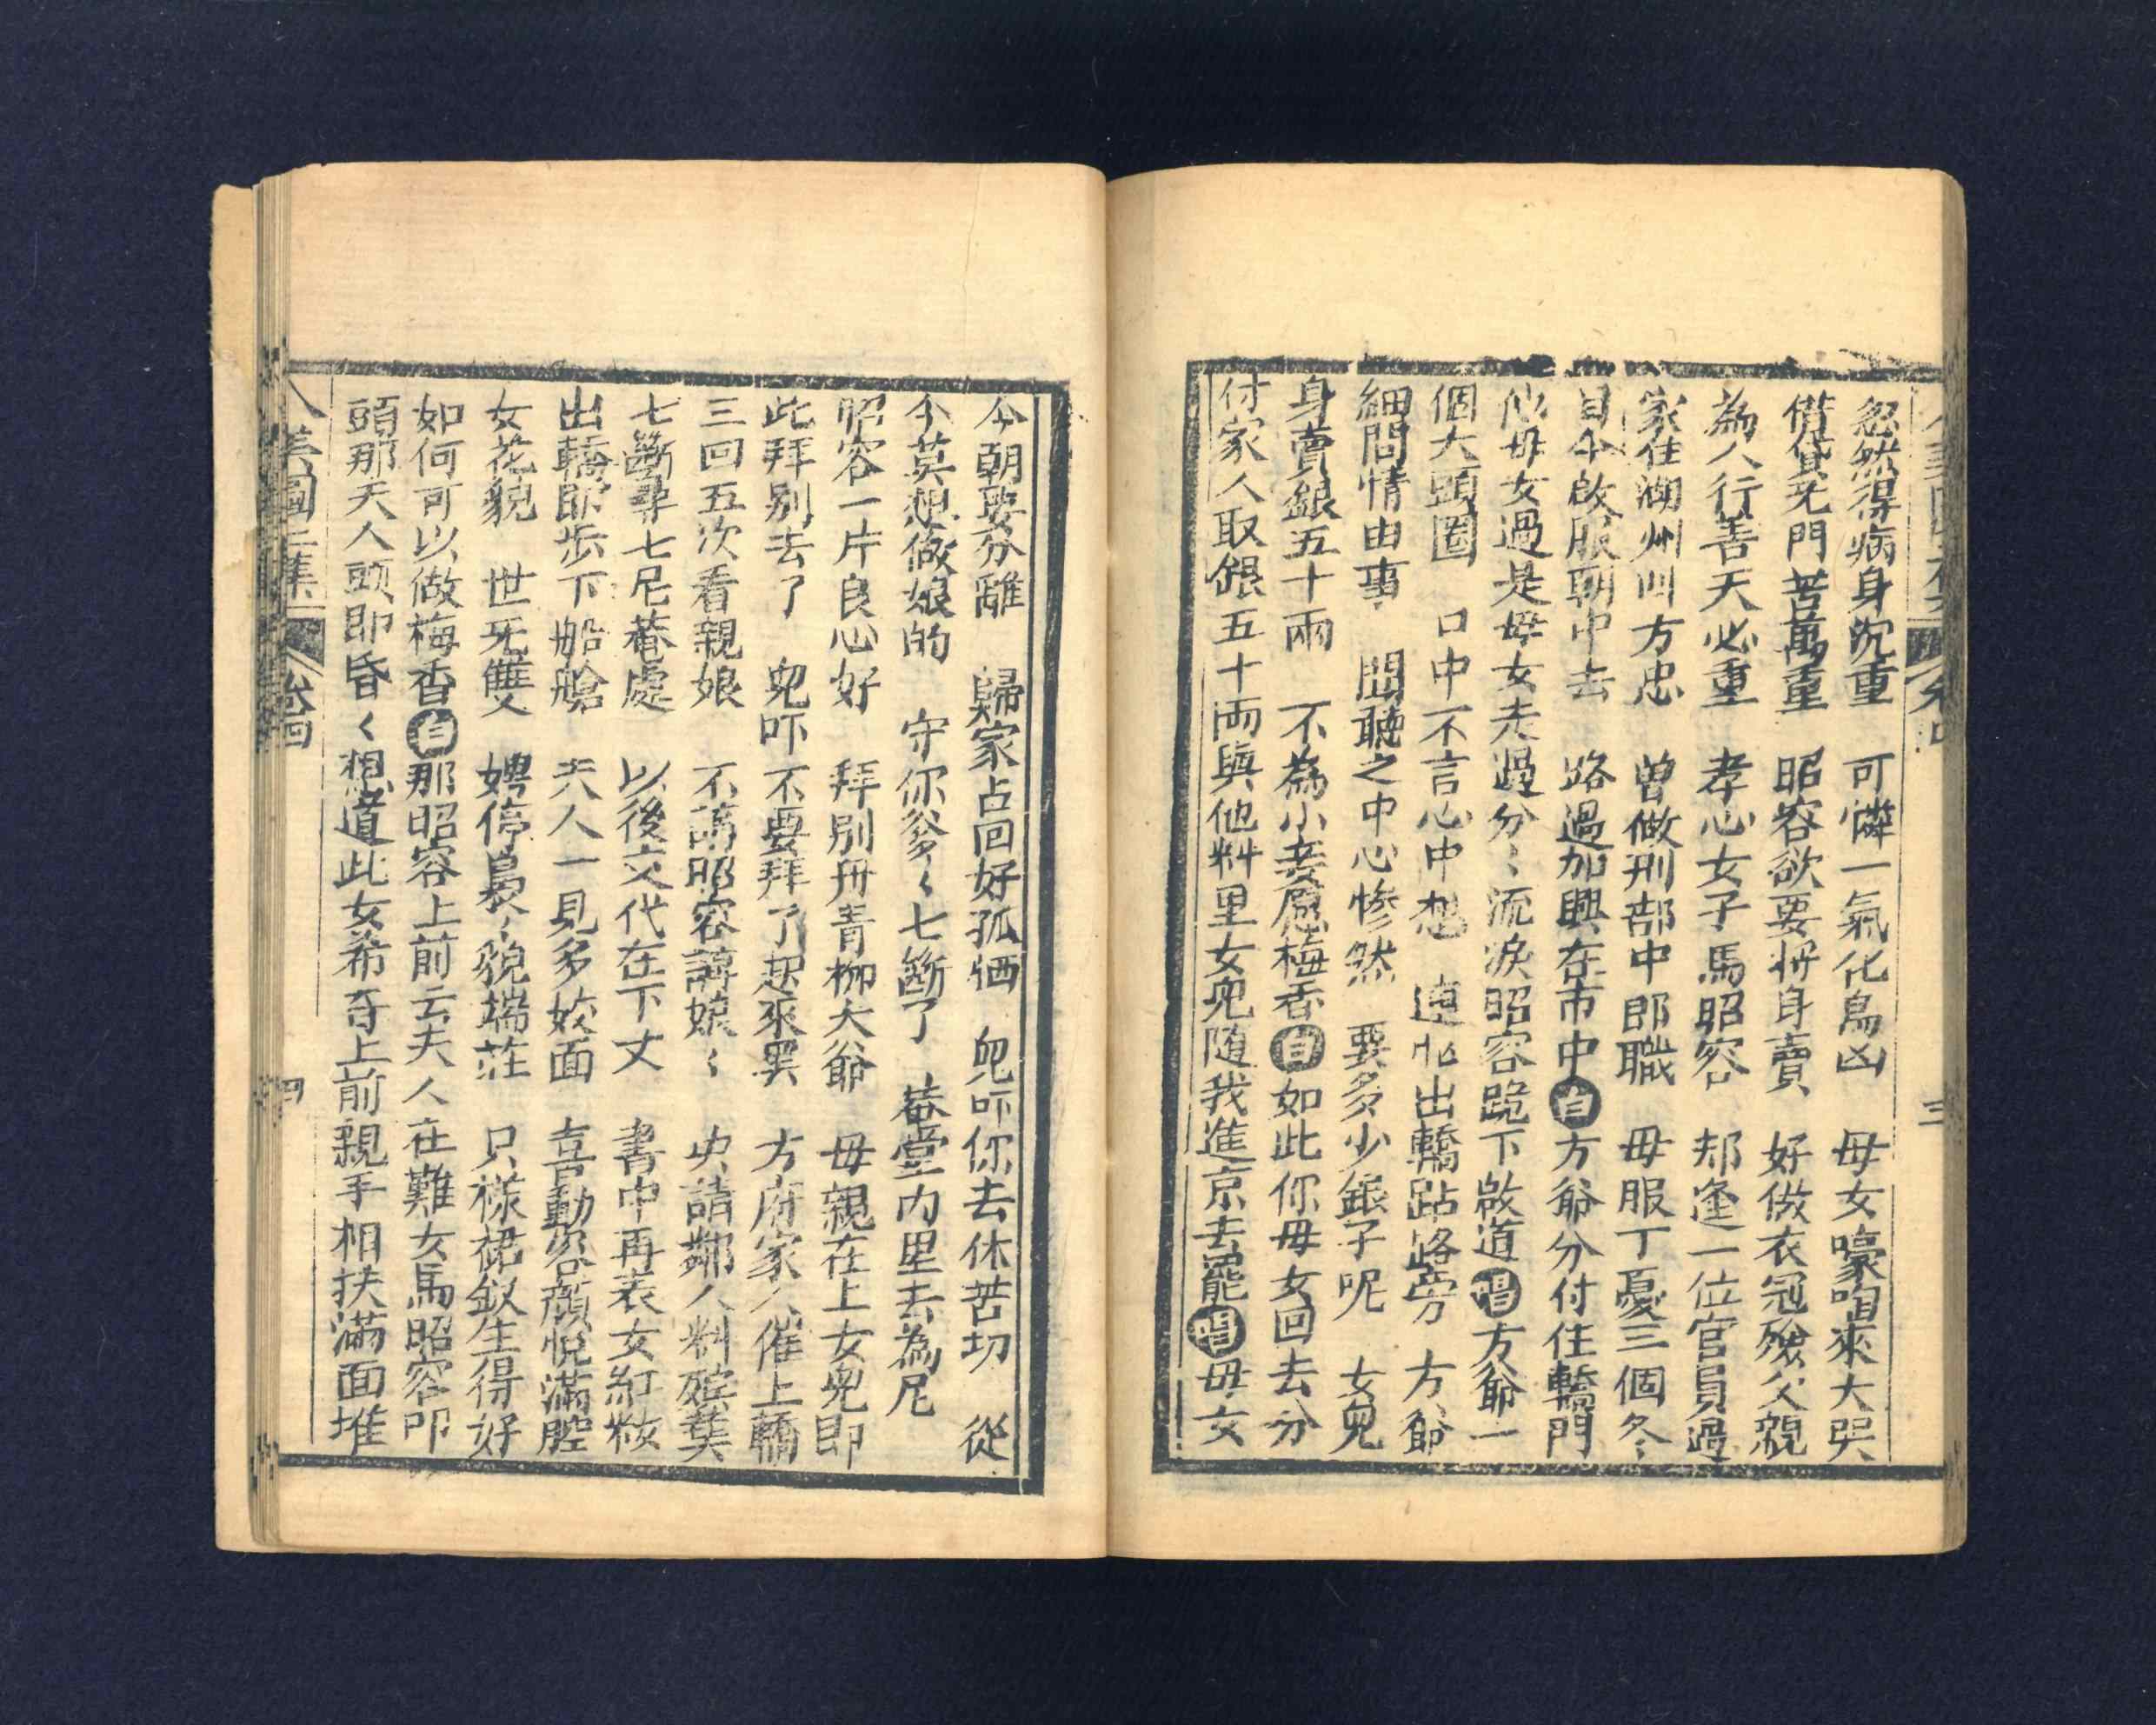 忽然得病身沉重　可憐一氣化鳥凶　毋女嚎啕來大哭
借貸无門苦萬重　昭容欲要將身賣　好做衣冠殮父親
為人行善天必重　孝心女子馬昭容　却逢一位官員過
家住湖州叫方忠　曽做刑部中郎職　毋服丁憂三個冬
目今啟服朝中去　路過加興在市中㊂方爺分付住轎門
他毋女過是毋女走過分〻流淚昭容跪下啟道唱方爺一
個大頭圈　口中不言心中想　連忙出轎跕路旁　方爺
細問情由事　聞聽之中心慘然　要多少銀子呢　女兒
身賣銀五十兩　不為小妾愿梅香㊂如此你毋女回去分
付家人取銀五十両與他料里女兒随我進京去罷唱毋女
今朝要分離　歸家占回好孤恓　兒吓你去休苦切　從
今莫想做娘的　守你爹〻七斷了　菴堂内里去為尼
昭容一片良心好　拜别毋青柳大爺　毋親在上女兒即
此拜别去了　兒吓不要拜了起來罢　方府家人催上轎
三回五次看親娘　不講昭容諄娘〻　央請鄰人料殯葬
七斷尋七尼菴處　以後交代在下文　書中再表女紅粧
出轎即步下船艙　夫人一見多姣面　喜動容顔悦滿腔
女花貌　世无雙　娉停裊〻貌端莊　只樣裙釵生得好
如何可以做梅香㊂那昭容上前云夫人在難女馬昭容叩
頭那夫人頭即昏〻想道此女希奇上前親手相扶滿面堆
八美圖二集　卷四　四